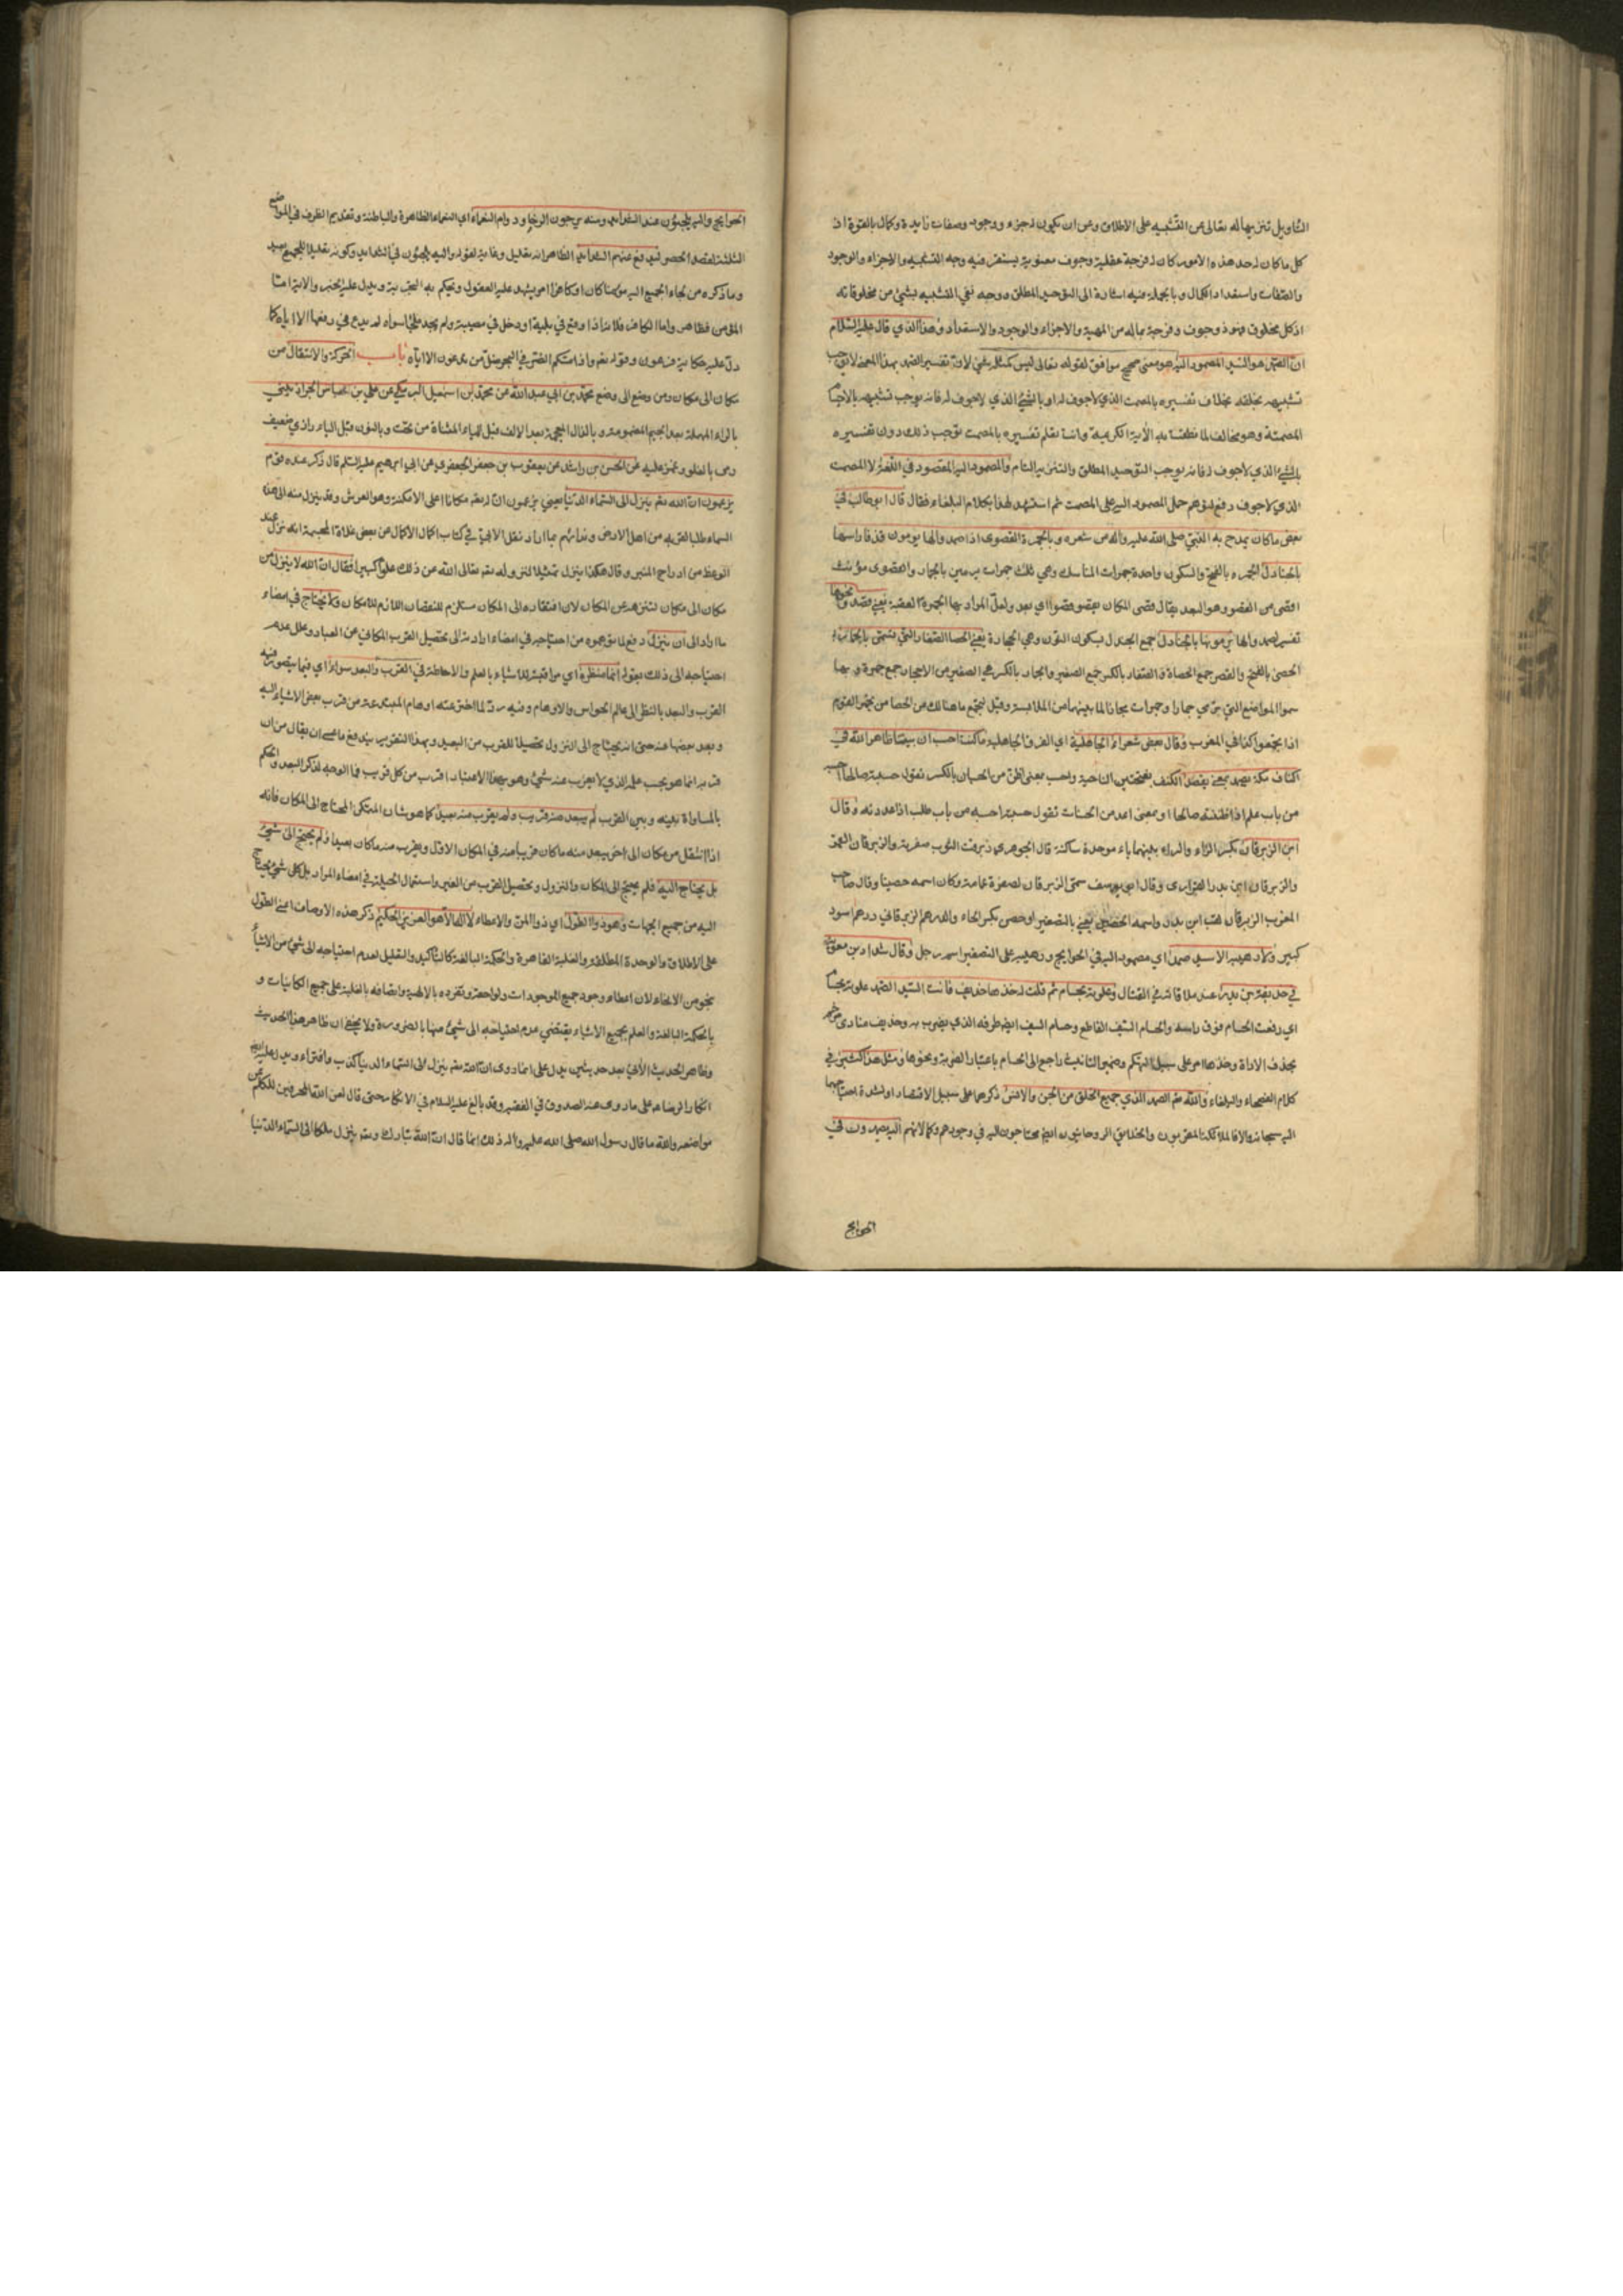 التأويل تنزيها له تعالى من التشبيه على الاطلاق وعن ان يكون له جزء ووجود وصفات زايدة وكمال بالقوة اذ
كل ما كان له احد هذه الامور كان له فرجة عقلية وجوف معنوية يستقر فيه وجه التشبيه والاجزاء والوجود
والصفات واستعداد الكمال وبالجملة فيه اشارة الى التوحيد المطلق ووجه نفي التشبيه بشيء من مخلوقاته
اذ كل مخلوق فهو ذو جوف وفرجة بماله من المهية والاجزاء والوجود والاستعداد وهذا الذي قال عليه السلام
ان الصمد هو السيد المصمود اليه هو معنى صحيح موافق لقوله تعالى ليس كمثله شيء لان تفسير الصمد بهذا المعنى لا يوجب
تشبيهه بخلقه بخلاف تفسيره بالمصمت الذي لا جوف له او بالشيء الذي لا جوف له فانه يوجب تشبيهه بالاجسام
المصمتة وهو مخالف لما نطقت به الآية الكريمة وانت تعلم تفسيره بالمصمت يوجب ذلك دون تفسيره
بالشيء الذي لا جوف له فانه يوجب التوحيد المطلق والتنزيه التام والمصمود اليه المقصود في اللغة لا المصمت
الذي لا جوف له دفع لتوهم حمل المصمود اليه على المصمت ثم استشهد لهذا بكلام البلغاء فقال قال ابو طالب في
بعض ما كان يمدح به النبي صلى الله عليه وآله من شعره وبالجمرة القصوى اذا صمدوا لها يؤمون قذفا راسها
بالجنادل الجمرة بالفتح والسكون واحدة جمرات المناسك وهي ثلث جمرات يرمين بالجمار والقصوى مؤنث
اقصى من القصو وهو البعد يقال قصى المكان يقصو قصوا اي بعد ولعل المراد بها الجمرة العقبة يعني قصدوا نحوها
تفسير لصمدوا لها يرمونها بالجنادل جمع الجندل بسكون النون وهي الحجارة يعني الحصا الصغار التي تسمى بالجمار
الحصى بالفتح والقصر جمع الحصاة والصغار بالكسر جمع الصغير والجمار بالكسر هي الصغير من الاحجار جمع جمرة وبها
سموا المواضع التي ترمي جمارا وجمرات مجازا لما بينهما من الملابسة وقيل لتجمع ما هنالك من الحصا من تجمر القوم
اذا تجمعوا كذا في المغرب وقال بعض شعراء الجاهلية اي الفرق الجاهلية ما كنت احسب ان بيتا ظاهرا لله في
اكناف مكة يصمد يعني يقصد الكنف بفتحتين الناحية واحسب بمعنى اظن من الحسبان بالكسر تقول حسبته صالحا احسبه
من باب علم اذا ظننته صالحا او بمعنى اعد من الحساب تقول حسبته احسبه من باب طلب اذا عددته وقال
ابن الزبرقان بكسر الزاء والراء بينهما باء موحدة ساكنة قال الجوهري زبرقت الثوب صفرته والزبرقان القمر
والزبرقان ابن بدر الفزاري وقال ابو يوسف سمى الزبرقان لصفرة عمامته وكان اسمه حصينا وقال صاحب
المغرب الزبرقان لقب ابن بدر واسمه الحصين يعني بالتصغير او حصن بكسر الحاء والدرهم الزبرقاني درهم اسود
كبير ولا رهيبة الا سيد صمد اي مصمود اليه في الحوايج ورهيبة على التصغير اسم رجل وقال شداد بن معوية
في حذيفة بن بدر عند ملاقاته في القتال وعلوته بحسام ثم قلت له خذها حذيف فانت السيد الصمد علوته بحسام
اي رفعت الحسام فوق راسه والحسام السيف القاطع وحسام السيف ايضا طرفه الذي يضرب به وحذيف منادى مرخم
بحذف الاداة وخذها امر على سبيل التهكم وضمير التانيث راجع الى الحسام باعتبار الضربة ونحوها ومثل هذا كثير في
كلام الفصحاء والبلغاء والله عز وجل الصمد الذي جميع الخلق من الجن والانس ذكرهما على سبيل الاقتصار او لشدة احتياجهما
اليه سبحانه والا فالملائكة المقربون والخلائق الروحانيون ايضا محتاجون اليه في وجودهم وكمالاتهم اليه يصمدون في
الحوايج
الحوايج واليه يلجئون عند الشدايد ومنه يرجون الرخاء ودوام النعماء اي النعماء الظاهرة والباطنة وتقديم الظرف في المواضع
الثلثة لقصد الحصر ليدفع عنهم الشدايد الظاهر انه تعليل وغاية لقوله واليه يلجئون في الشدايد وكونه تعليلا للجميع بعيد
وما ذكره من لجاء الجميع اليه مؤمنا كان او كافرا امر يشهد عليه العقول ويحكم به التجربة ويدل عليه الخبر والاية اما
المؤمن فظاهر واما الكافر فلانه اذا وقع في بلية او دخل في مصيبة ولم يجد ملجأ سواه لم يدع في رفعها الا اياه كما
دل عليه حكاية فرعون وقوله تعالى واذا مسكم الضر في البحر ضل من تدعون الا اياه باب الحركة والانتقال من
مكان الى مكان ومن وضع الى وضع محمد بن ابي عبد الله عن محمد بن اسمعيل البرمكي عن علي بن عباس الجراذيني
بالراء المهملة بعد الجيم المضمومة وبالذال المعجمة بعد الالف قبل الياء المثناة من تحت وبالنون قبل الياء رازي ضعيف
رمى بالغلو وغمز عليه عن الحسن بن راشد عن يعقوب بن جعفر الجعفري عن ابي ابرهيم عليه السلم قال ذكر عنده قوم
يزعمون ان الله تعالى ينزل الى السماء الدنيا يعني يزعمون ان له تعالى مكانا اعلى الامكنة وهو العرش وقد ينزل منه الى هذه
السماء طلبا لقربه من اهل الارض وندائهم بما اراد نقل الآبي في كتاب اكمال الاكمال عن بعض غلاة المجسمة انه نزل عند
الوعظ من ادراج المنبر وقال هكذا ينزل تمثيلا لنزوله تعالى الله عن ذلك علوا كبيرا فقال ان الله لا ينزل من
مكان الى مكان لتنزهه عن المكان لان افتقاره الى المكان مستلزم للنقصان اللازم للامكان ولا يحتاج في امضاء
ما اراد الى ان ينزل دفع لما توهموه من احتياجه في امضاء ارادته الى تحصيل القرب المكاني من العباد وعلل عدم
احتياجه الى ذلك بقوله انما منظره اي مراقبته للاشياء بالعلم والاحاطة في القرب والبعد سواء اي فيما يتصور فيه
القرب والبعد بالنظر الى عالم الحواس والاوهام وفيه رد لما اخترعته اوهام المبتدعة من قرب بعض الاشياء اليه
وبعد بعضها عنه حتى انه يحتاج الى النزول تحصيلا للقرب من البعيد وبهذا التقرير يندفع ما عسى ان يقال من ان
قربه انما هو بحسب علمه الذي لا يعزب عنه شيء وهو بهذا الاعتبار اقرب من كل قريب فما الوجه لذكر البعد والحكم
بالمساواة بينه وبين القرب لم يبعد منه قريب ولم يقرب منه بعيد كما هو شان المتمكن المحتاج الى المكان فانه
اذا انتقل من مكان الى اخر يبعد منه ما كان قريبا منه في المكان الاول ويقرب منه ما كان بعيدا ولم يحتج الى شيء
بل يحتاج اليه فلم يحتج الى المكان والنزول وتحصيل القرب من الغير واستعمال الحيلة في امضاء المراد بل كل شيء محتاج
اليه من جميع الجهات وهو ذو الطول اي ذو المن والاعطاء لا اله الا هو العزيز الحكيم ذكر هذه الاوصاف اعني الطول
على الاطلاق والوحدة المطلقة والغلبة القاهرة والحكمة البالغة كالتأكيد والتعليل لعدم احتياجه الى شيء من الاشياء
بنحو من الانحاء لان اعطاء وجود جميع الموجودات ولواحقه وتفرده بالالهية واتصافه بالغلبة على جميع الكائنات و
بالحكمة البالغة والعلم بجميع الاشياء يقتضي عدم احتياجه الى شيء منها بالضرورة ولا يخفى ان ظاهر هذا الحديث
وظاهر الحديث الآتي بعد حديثين يدل على ان ما روى ان الله تعالى ينزل الى السماء الدنيا كذب وافتراء ويدل عليه ايضا
انكار الرضا عليه السلام على ما روى عنه الصدوق في الفقيه وقد بالغ عليه السلام في الانكار حتى قال لعن الله المحرفين للكلم عن
مواضعه والله ما قال رسول الله صلى الله عليه وآله ذلك انما قال ان الله تبارك وتعالى ينزل ملكا الى السماء الدنيا